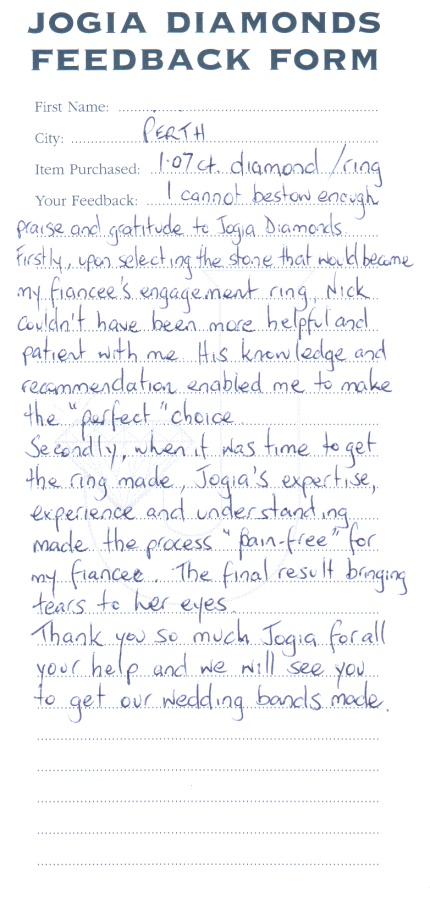 JOGIA DIAMONDS
FEEDBACK FORM
First Name:
City: PERTH
Item Purchased: 1.07ct. diamond /ring
Your Feedback: I cannot bestow enough
praise and gratitude to Jogia Diamonds
Firstly, upon selecting the stone that would become
my fiancee's engagement ring, Nick
couldn't have been more helpful and
patient with me. His knowledge and
recommendation enabled me to make
the "perfect" choice
Secondly, when it was time to get
the ring made, Jogia's expertise,
experience and understanding
made the process "pain-free" for
my fiancee. The final result bringing
tears to her eyes.
Thank you so much Jogia for all
your help and we will see you
to get our wedding bands made.